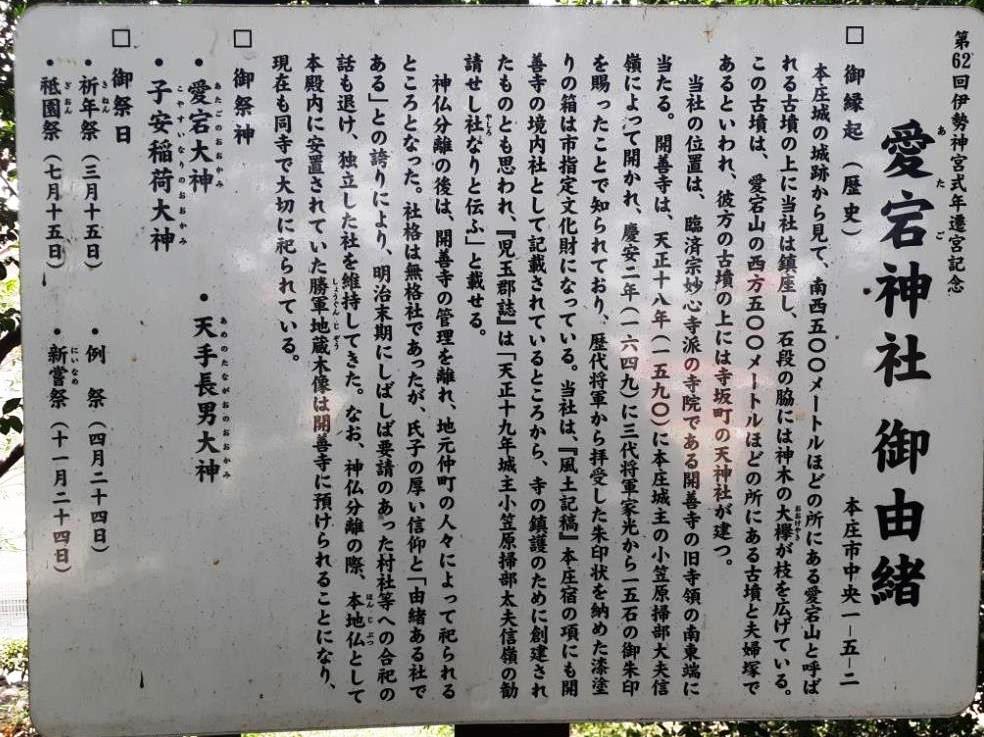 第62回伊勢神宮式年遷宮記念
愛宕神社 御由緒
あたご
本庄市中央一−五−二
□ 御縁起（歴史）
本庄城の城跡から見て、南西五〇〇メートルほどの所にある愛宕山と呼ば
れる古墳の上に当社は鎮座し、石段の脇には神木の大欅が枝を広げている。
おおけやき
この古墳は、愛宕山の西方五〇〇メートルほどの所にある古墳と夫婦塚で
あるといわれ、彼方の古墳の上には寺坂町の天神社が建つ。
当社の位置は、臨済宗妙心寺派の寺院である開善寺の旧寺領の南東端に
当たる。開善寺は、天正十八年（一五九〇）に本庄城主の小笠原掃部大夫信
嶺によって開かれ、慶安二年（一六四九）に三代将軍家光から一五石の御朱印
を賜ったことで知られており、歴代将軍から拝受した朱印状を納めた漆塗
りの箱は市指定文化財になっている。当社は、『風土記稿』本庄宿の項にも開
善寺の境内社として記載されているところから、寺の鎮護のために創建され
たものとも思われ、『児玉郡誌』は「天正十九年城主小笠原掃部太夫信嶺の勧
請せし社なりと伝ふ」と載せる。
やしろ
神仏分離の後は、開善寺の管理を離れ、地元仲町の人々によって祀られる
ところとなった。社格は無格社であったが、氏子の厚い信仰と「由緒ある社で
ある」との誇りにより、明治末期にしばしば要請のあった村社等への合祀の
話も退け、独立した社を維持してきた。なお、神仏分離の際、本地仏として
ほんじぶつ
本殿内に安置されていた勝軍地蔵木像は開善寺に預けられることになり、
しょうぐんじぞう
現在も同寺で大切に祀られている。
□ 御祭神
・愛宕大神
あたごのおおかみ
・天手長男大神
あめのたながおのおおかみ
・子安稲荷大神
こやすいなりのおおかみ
□ 御祭日
・祈年祭（三月十五日）
きねん
・例 祭（四月二十四日）
・祗園祭（七月十五日）
ぎおん
・新嘗祭（十一月二十四日）
にいなめ